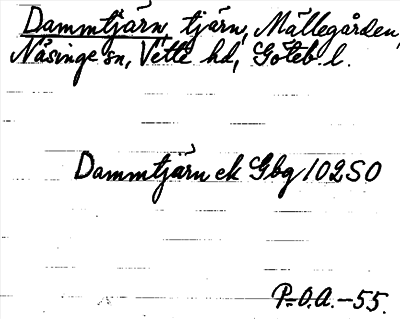 Dammtjärn, tjärn, Mällegården,
Näsinge sn, Vette hd, Göteb l.
Dammtjärn ek Gbg 102SO
P.O.A. -55.